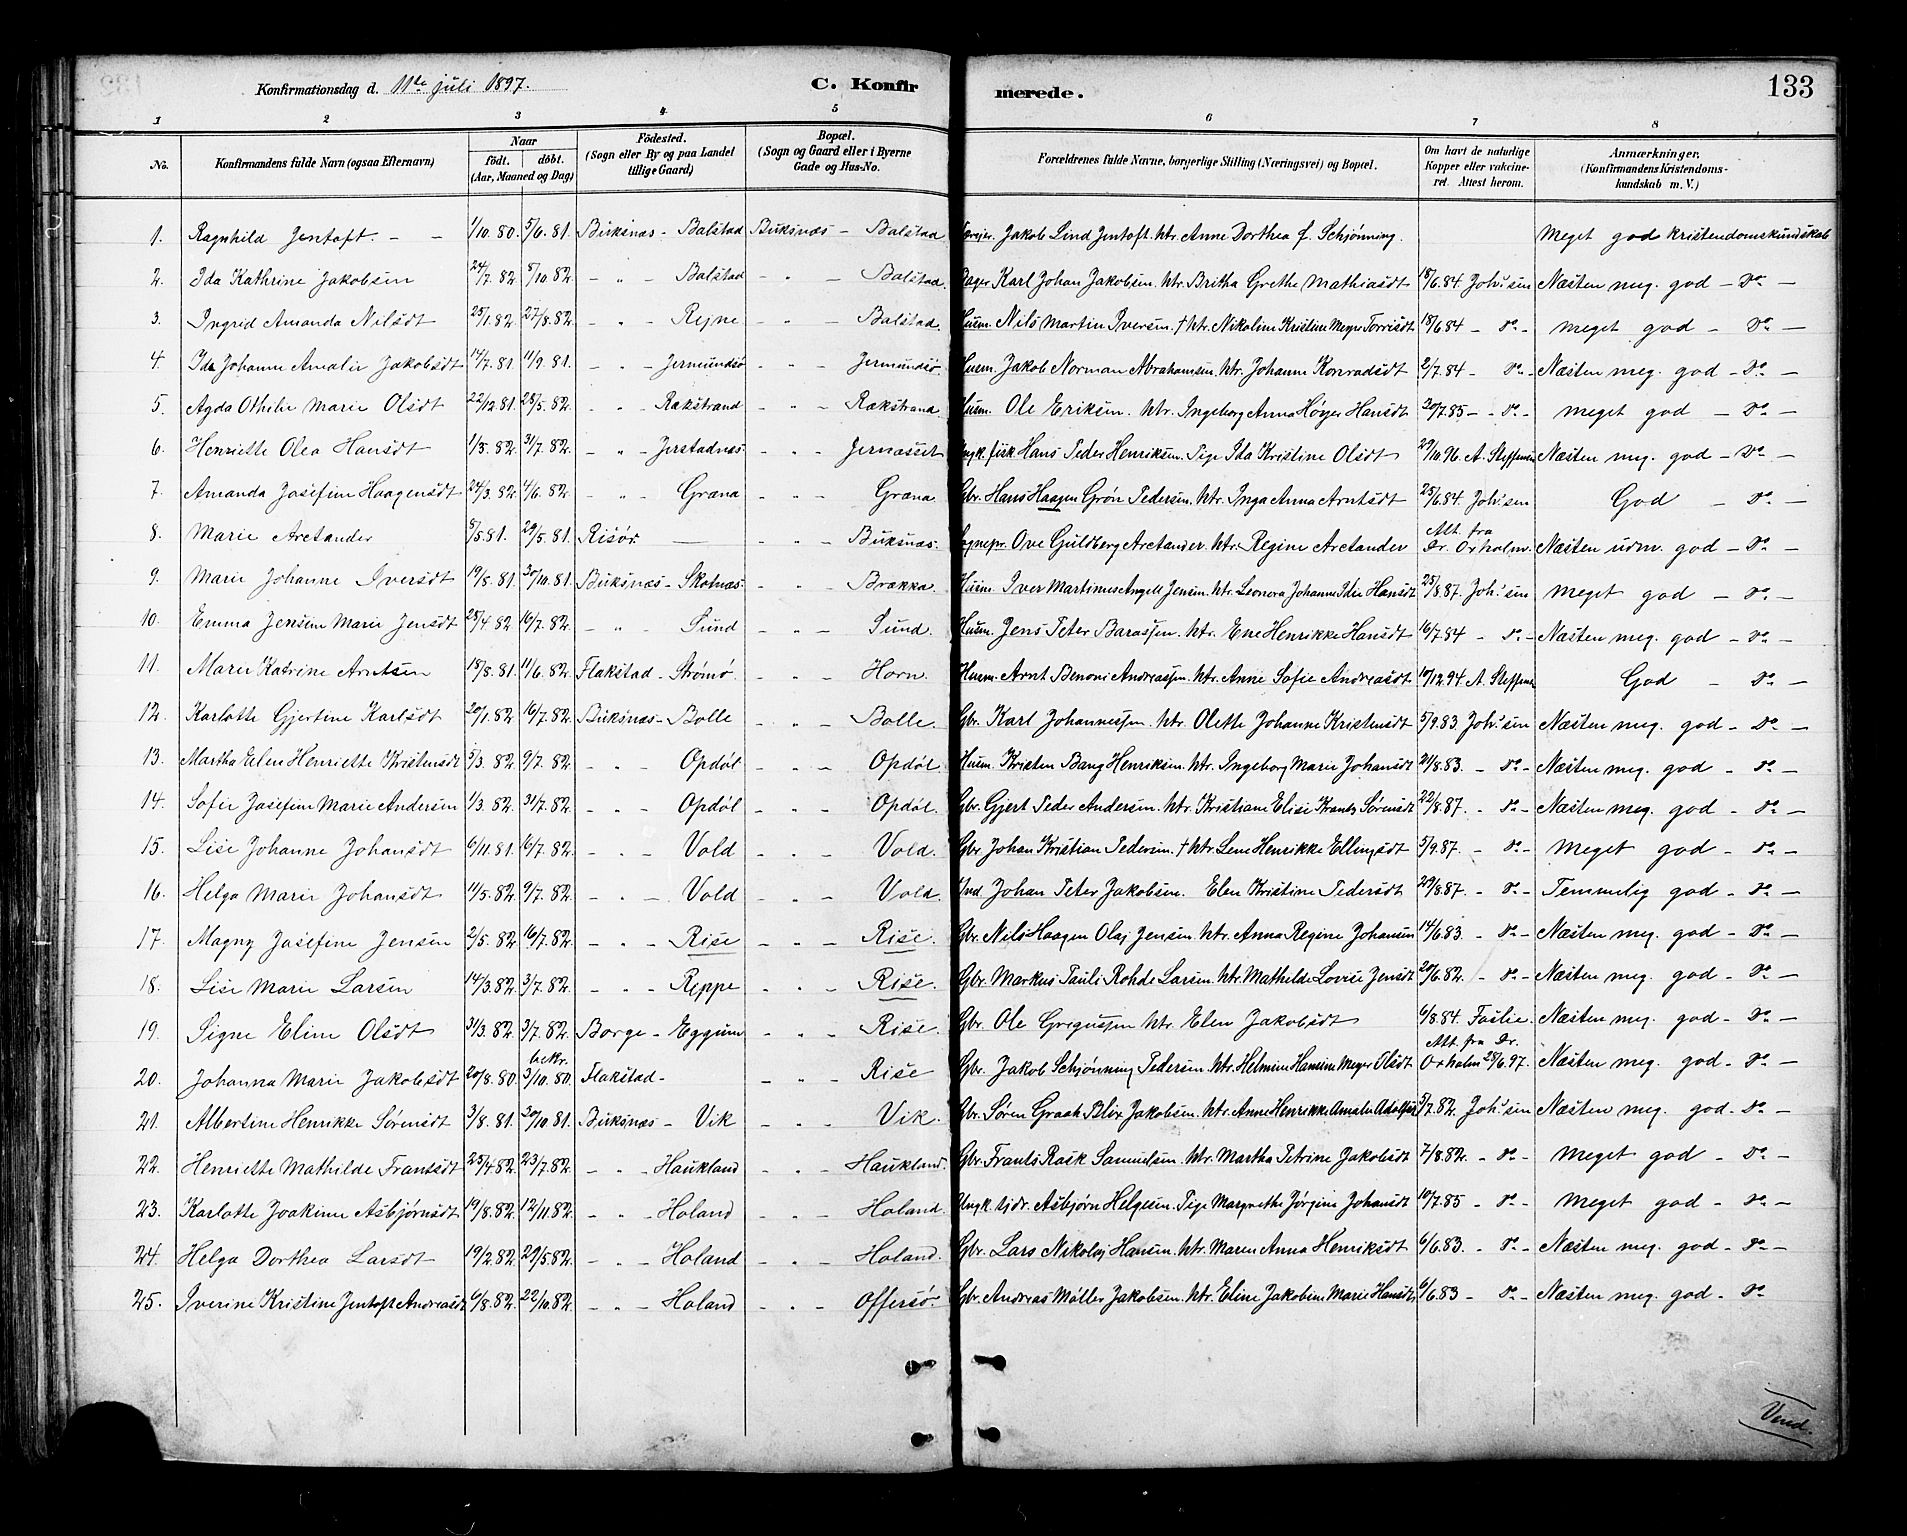 Konfirmationsdag d. 11te juli 1897. C. Konfirmerede. 133
1 2 3 4 5 6 7 8
No. Konfirmandens fulde Navn (ogsaa Efternavn) Naar født. døbt. (Aar, Maaned og Dag) Fødested. (Sogn eller By og paa Landet tillige Gaard) Bopæl. (Sogn og Gaard eller i Byerne Gade og Hus-No. Forældrenes fulde Navne, borgerlige Stilling (Næringsvei) og Bopæl. Om havt de naturlige Kopper eller vakcineret. Attest herom. Anmærkninger, (Konfirmandens Kristendomskundskab m. V.)
1. Ragnhild Jentoft. - - 1/10 80. 5/6. 81. Buksnæs - Balstad Buksnæs - Balstad Jakob Lind Jentoft. Htr. Anne Dorthea f. Schjønning. Meget god kristendomskundskab
2. Ida Kathrine Jakobsen 24/7. 82. 8/10. 82. - " - Balstad - " - Balstad. Karl Johan Jakobsen. Htr. Britha Grethe Mathiasdt 18/6.84 Joh.sen Næsten meg. god - Do -
3. Ingrid Amanda Nilsdt 25/1.82. 27/8.82. - " - Rejne - " - Balstad. Husm. Nils Martin Iversen. † Htr. Nikoline Kristine Meyer Torrisdt 18/6.84 - do - meget god - Do -
4. Ida Johanne Amalie Jakobsdt 14/7.81. 11/9.81. - " - Jermundsø - " - Jermundsø Husm. Jakob Norman Abrahamsen. Htr. Johanne Konradsdt 2/7.84 - do - Næsten meg. god - Do -
5. Agda Othelie Marie Olsdt 22/12.81. 28/5.82. - " - Rækstrand - " - Rækstrand Husm. Ole Eriksen. Htr. Ingeborg Anna Høyer Hansdt 20/7.85 - do - meget god - Do -
6. Henriette Olea Hansdt 1/5.82. 31/7.82. - " - Jerstadnæs - " - Jernæsset Ungk. fisk. Hans Peder Henriksen. Pige Ida Kristine Olsdt 29/10.96. A. Steffensen Næsten meg. god - Do -
7. Amanda Josefine Haagensdt 24/3.82. 4/6.82. - " - Græna - " - Græna Gbr. Hans Haagen Grön Pedersen. Htr. Inga Anna Arntsdt 25/6.84 Joh.sen God - Do -
8. Marie Arctander 5/5.81. 29/5.81. Risør. - - " - Buksnæs. Sognepr. Ove Guldberg Arctander. Htr. Regine Arctander Att. fra Dr. Oxholm. Næsten udm. god - Do -
9. Marie Johanne Iversdt 19/8.81. 30/10.81. Buksnæs - Skotnæs - " - Brækka. Husm. Iver Martinus Angell Jensen. Htr. Leonora Johanne Idie Hansdt 25/8.87. Joh.sen meget god - Do -
10. Emma Jensine Marie Jensdt 25/4.82 16/7.82. - " - Sund - " - Sund. Husm. Jens Peter Barassen. Htr. Ene Henrikke Hansdt 16/7.84 - do - Næsten meg. god - Do -
11. Marie Katrine Arntsen 18/8.81. 11/6.82. Flakstad - Strømø - " - Horn. Husm. Arnt Benoni Andreassen. Htr. Anne Sofie Andreasdt 10/12.94. A. Steffensen God - Do -
12. Karlotte Gjertine Karlsdt 20/1.82. 16/7.82. Buksnæs - Bolle - " - Bolle. Gbr. Karl Johannessen. Htr. Olette Johanne Kristensdt 5/9.83 Joh.sen Næsten meg. god - Do -
13. Martha Elen Henriette Kristensdt 5/3.82. 9/7.82. - " - Opdøl - " - Opdøl. Husm. Kristen Bang Henriksen. Htr. Ingeborg Marie Johansdt 21/8.83. - do - Næsten meg. god - do -
14. Sofie Josefine Marie Andersen 1/3.82. 31/7.82. - " - Opdøl - " - Opdøl. Gbr. Gjert Peder Andersen. Htr. Kristiane Elise Krantz Sørensdt 22/8.87. - do - Næsten meg. god - do -
15. Lise Johanne Johansdt 6/11.81. 16/7.82. - " - Vold - " - Vold. Gbr. Johan Kristian Pedersen. † Htr. Lene Henrikke Ellingsdt 5/9.87. - do - meget god - do -
16. Helga Marie Johansdt 11/5.82. 9/7.82. - " - Vold - " - Vold. Ind. Johan Peter Jakobsen. Elen Kristine Pedersdt 29/8.87. - do - Temmelig god - do -
17. Magny Josefine Jensen 2/5.82. 16/7.82. - " - Rise - " - Rise. Gbr. Nils Haagen Olaj Jensen. Htr. Anna Regine Johansen 14/6.83. - do - Næsten meg. god - do -
18. Lise Marie Larsen 14/3.82. 3/7.82. - " - Reppe - " - Rise. Gbr. Markus Pauli Rohde Larsen. Htr. Mathilde Lovise Jensdt 20/6.82. - do - Næsten meg. god - do -
19. Signe Eline Olsdt 31/3.82. 3/7.82. Borge - Eggum - " - Rise. Gbr. Ole Gregussen Htr. Elen Jakobsdt 6/8.84. Foslie. Næsten meg. god - do -
20. Johanna Marie Jakobsdt 20/8.80. bekr. 3/10.80. Flakstad - - " - Rise Gbr. Jakob Schjønning Pedersen. Htr. Helmine Hansine Meyer Olsdt Att. fra Dr. Oxholm 28/6.97. Næsten meg. god - do -
21. Albertine Henrikke Sørensdt 3/8.81. 30/10.81. Buksnæs - Vik - " - Vik. Gbr. Søren Graah Blix Jakobsen. Htr. Anne Henrikke Amalie 5/7.82. Joh.sen Næsten meg. god - do -
22. Henriette Mathilde Frantsdt 25/4.82. 23/7.82. - " - Haukland - " - Haukland. Gbr. Frants Rask Samuelsen. Htr. Martha Petrine Jakobsdt 7/8.82. - do - meget god - Do -
23. Karlotte Joakime Asbjørnsdt 19/8.82. 12/11.82. - " - Holand - " - Holand. Ungk. tjdr. Asbjørn Helgesen. Pige Margrethe Jørgine Johansdt 10/7.85 - do - meget god - do -
24. Helga Dorthea Larsdt 19/2.82. 29/5.82. - " - Holand - " - Holand. Gbr. Lars Nikolaj Hansen. Htr. Maren Anna Henriksdt 6/6.83. - do - Næsten meg. god - do -
25. Iverine Kristine Jentoft Andreasdt 6/8.82. 22/10.82. - " - Holand - " - Offersø. Gbr. Andreas Møller Jakobsen. Htr. Eline Jakobine Marie Hansdt. 6/6.83 - do - Næsten meg. god - do
Vend.